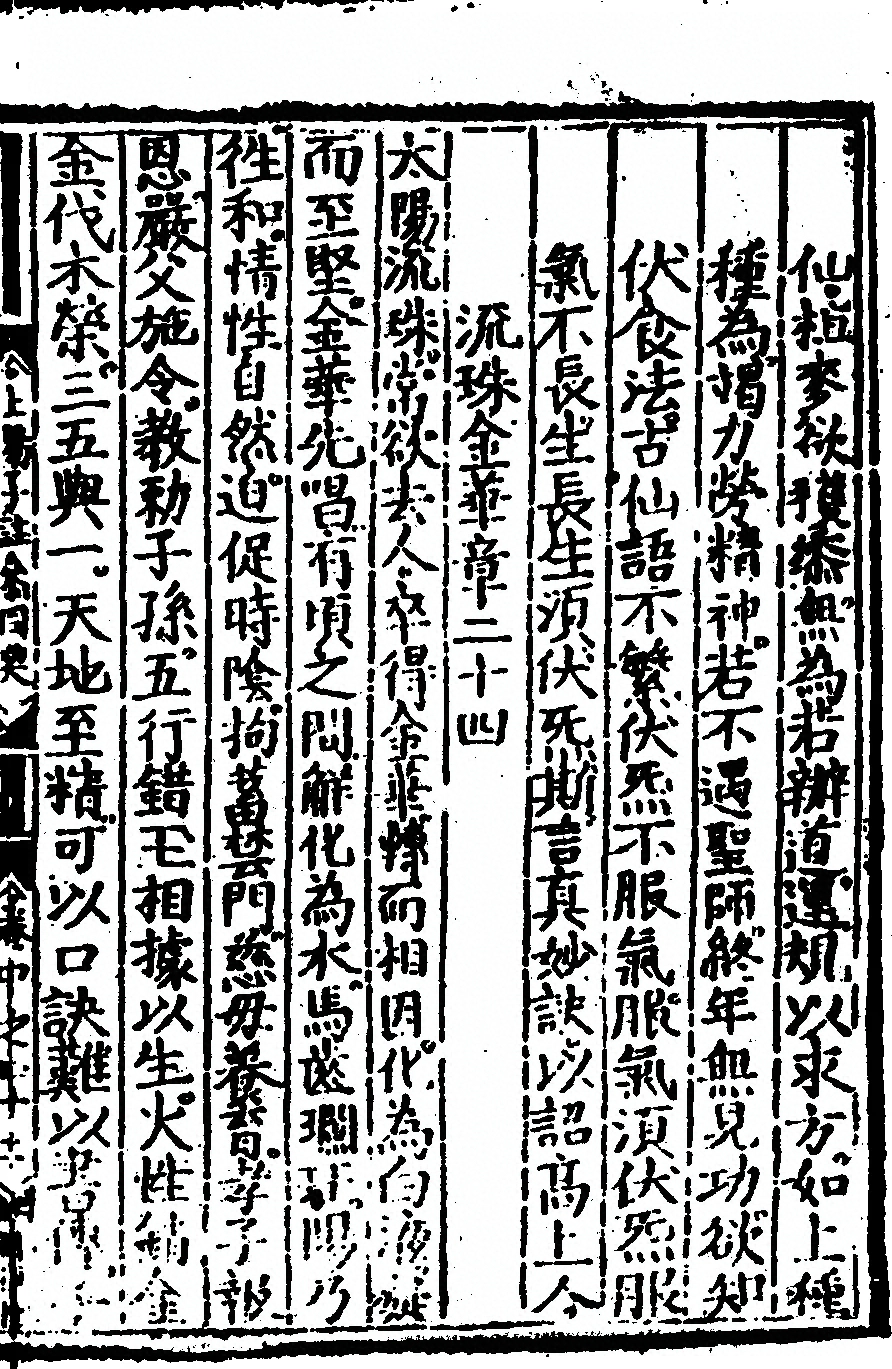 仙粗麥欲獲黍無為若辦道運規以求方如上種
種為愲力勞精神若不遇聖師終年無見功欲知
伏食法古仙語不繁伏炁不服氣服氣須伏炁服
氣不長生長生須伏死斯言真妙訣以詔高上人
流珠金華章二十四
太陽流珠常欲去人卒得金華轉而相因化為白液凝
而至堅金華先唱有頃之間解化為水馬齒瓓玕陽乃
徃和情性自然迫促時陰拘蓄禁門慈母養育孝子報
恩嚴父施令教勑子孫五行錯王相據以生火性銷金
金伐木榮三五與一天地至精可以口訣難以書傳子